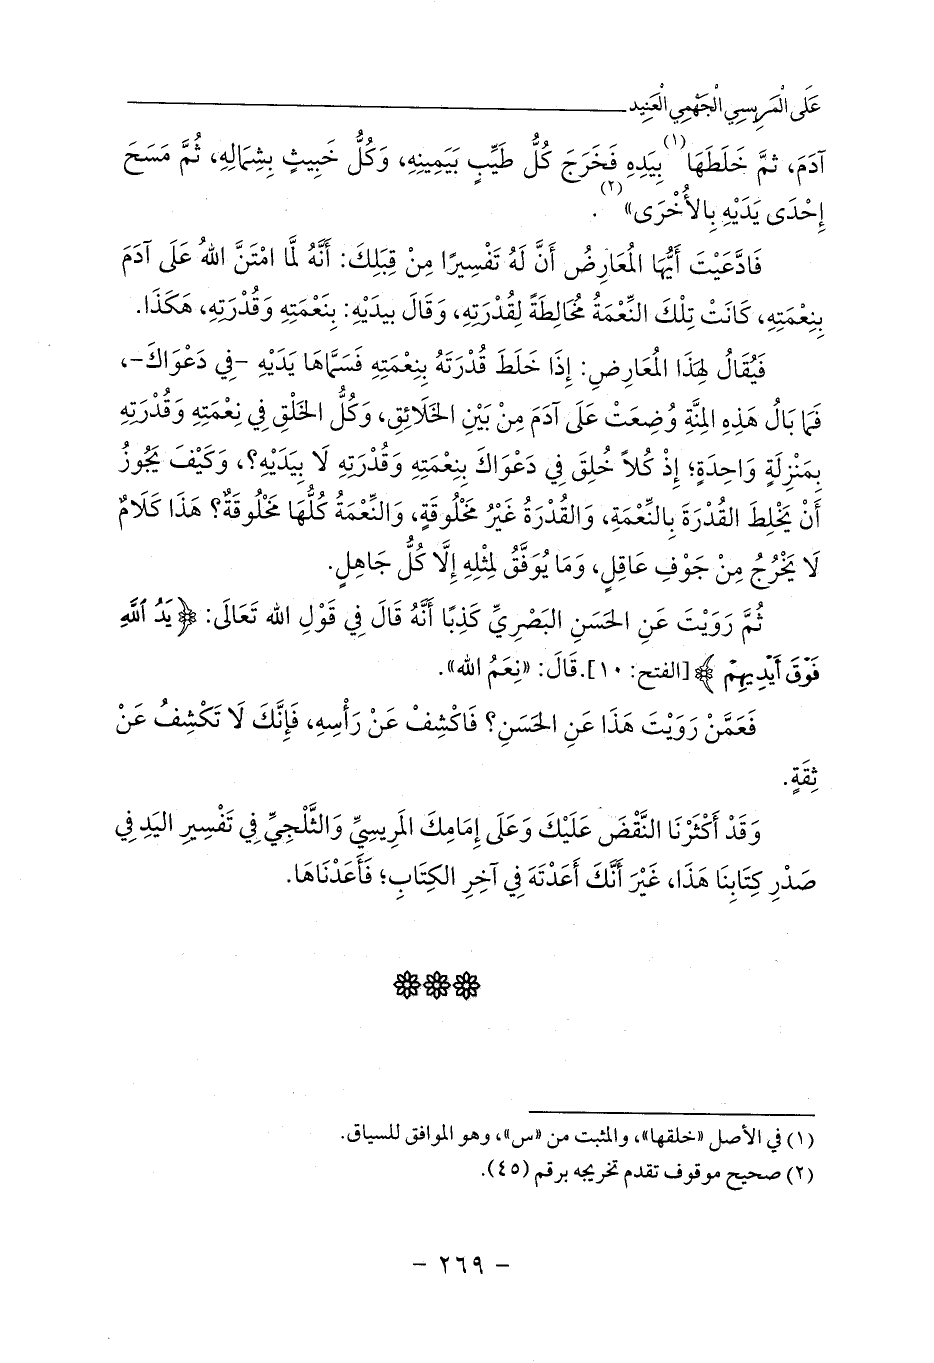 عَلَى الْمَرِيسِي الْجَهْمِي الْعَنِيد
آدَمَ، ثمَّ خَلَطَهَا(١) بِيَدِهِ فَخَرَجَ كُلُّ طَيِّبٍ بَيَمِينِهِ، وَكُلُّ خَبِيثٍ بِشِمَالِهِ، ثُمَّ مَسَحَ
إِحْدَى يَدَيْهِ بِالأُخْرَى»(٢).
فَادَّعَيْتَ أَيُّهَا المُعَارِضُ أَنَّ لَهُ تَفْسِيرًا مِنْ قِبَلِكَ: أَنَّهُ لَمَّا امْتَنَّ اللهُ عَلَى آدَمَ
بِنِعْمَتِهِ، كَانَتْ تِلْكَ النِّعْمَةُ مُخَالِطَةً لِقُدْرَتِهِ، وَقَالَ بيدَيْهِ: بِنَعْمَتِهِ وَقُدْرَتِهِ، هَكَذَا.
فَيُقَالُ لِهَذَا المُعَارِضِ: إِذَا خَلَطَ قُدْرَتَهُ بِنِعْمَتِهِ فَسَمَّاهَا يَدَيْهِ -فِي دَعْوَاكَ-،
فَمَا بَالُ هَذِهِ المِنَّةِ وُضِعَتْ عَلَى آدَمَ مِنْ بَيْنِ الخَلَائِقِ، وَكُلُّ الخَلْقِ فِي نِعْمَتِهِ وَقُدْرَتِهِ
بِمَنْزِلَةٍ وَاحِدَةٍ؛ إِذْ كُلاًّ خُلِقَ فِي دَعْوَاكَ بِنِعْمَتِهِ وَقُدْرَتِهِ لَا بِيَدَيْهِ؟، وَكَيْفَ يَجُوزُ
أَنْ يَخْلِطَ القُدْرَةَ بِالنِّعْمَةِ، وَالقُدْرَةُ غَيْرُ مَخْلُوقَةٍ، وَالنِّعْمَةُ كُلُّهَا مَخْلُوقَةٌ؟ هَذَا كَلَامٌ
لَا يَخْرُجُ مِنْ جَوْفِ عَاقِلٍ، وَمَا يُوَفَّقُ لِمْثلِهِ إِلَّا كُلُّ جَاهِلٍ.
ثُمَّ رَوَيْتَ عَنِ الحَسَنِ البَصْرِيِّ كَذِبًا أَنَّهُ قَالَ فِي قَوْلِ الله تَعَالَى: ﴿يَدُ ٱللَّهِ
فَوْقَ أَيْدِيهِمْ ﴾ [الفتح: ١٠]. قَالَ: «نِعَمُ الله».
فَعَمَّنْ رَوَيْتَ هَذَا عَنِ الحَسَنِ؟ فَاكْشِفْ عَنْ رَأْسِهِ، فَإِنَّكَ لَا تَكْشِفُ عَنْ
ثِقَةٍ.
وَقَدْ أَكْثَرْنَا النَّقْضَ عَلَيْكَ وَعَلَى إِمَامِكَ المَرِيسِيِّ وَالثَّلْجِيِّ فِي تَفْسِيرِ اليَدِ فِي
صَدْرِ كِتَابِنَا هَذَا، غَيْرَ أَنَّكَ أَعَدْتَهَ فِي آخِرِ الكِتَابِ؛ فَأَعَدْنَاهَا.
(١) في الأصل «خلقها»، والمثبت من «س»، وهو الموافق للسياق.
(٢) صحيح موقوف تقدم تخريجه برقم (٤٥).
- ٢٦٩ -